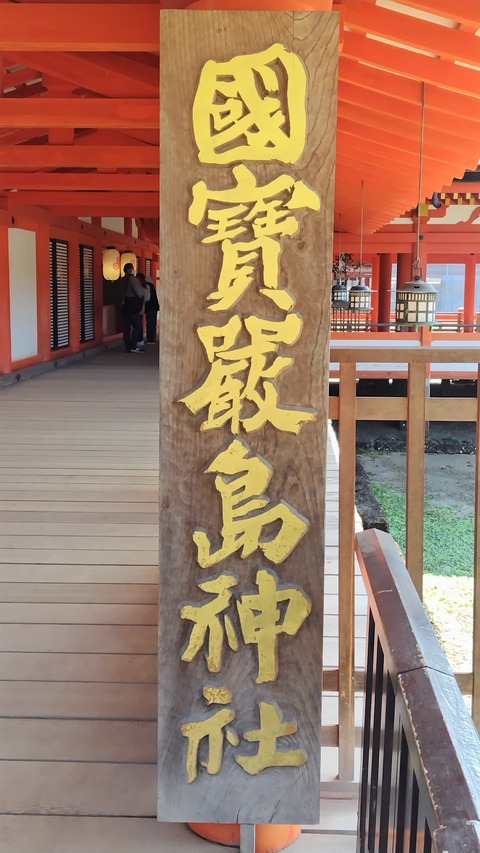 國寶嚴島神社